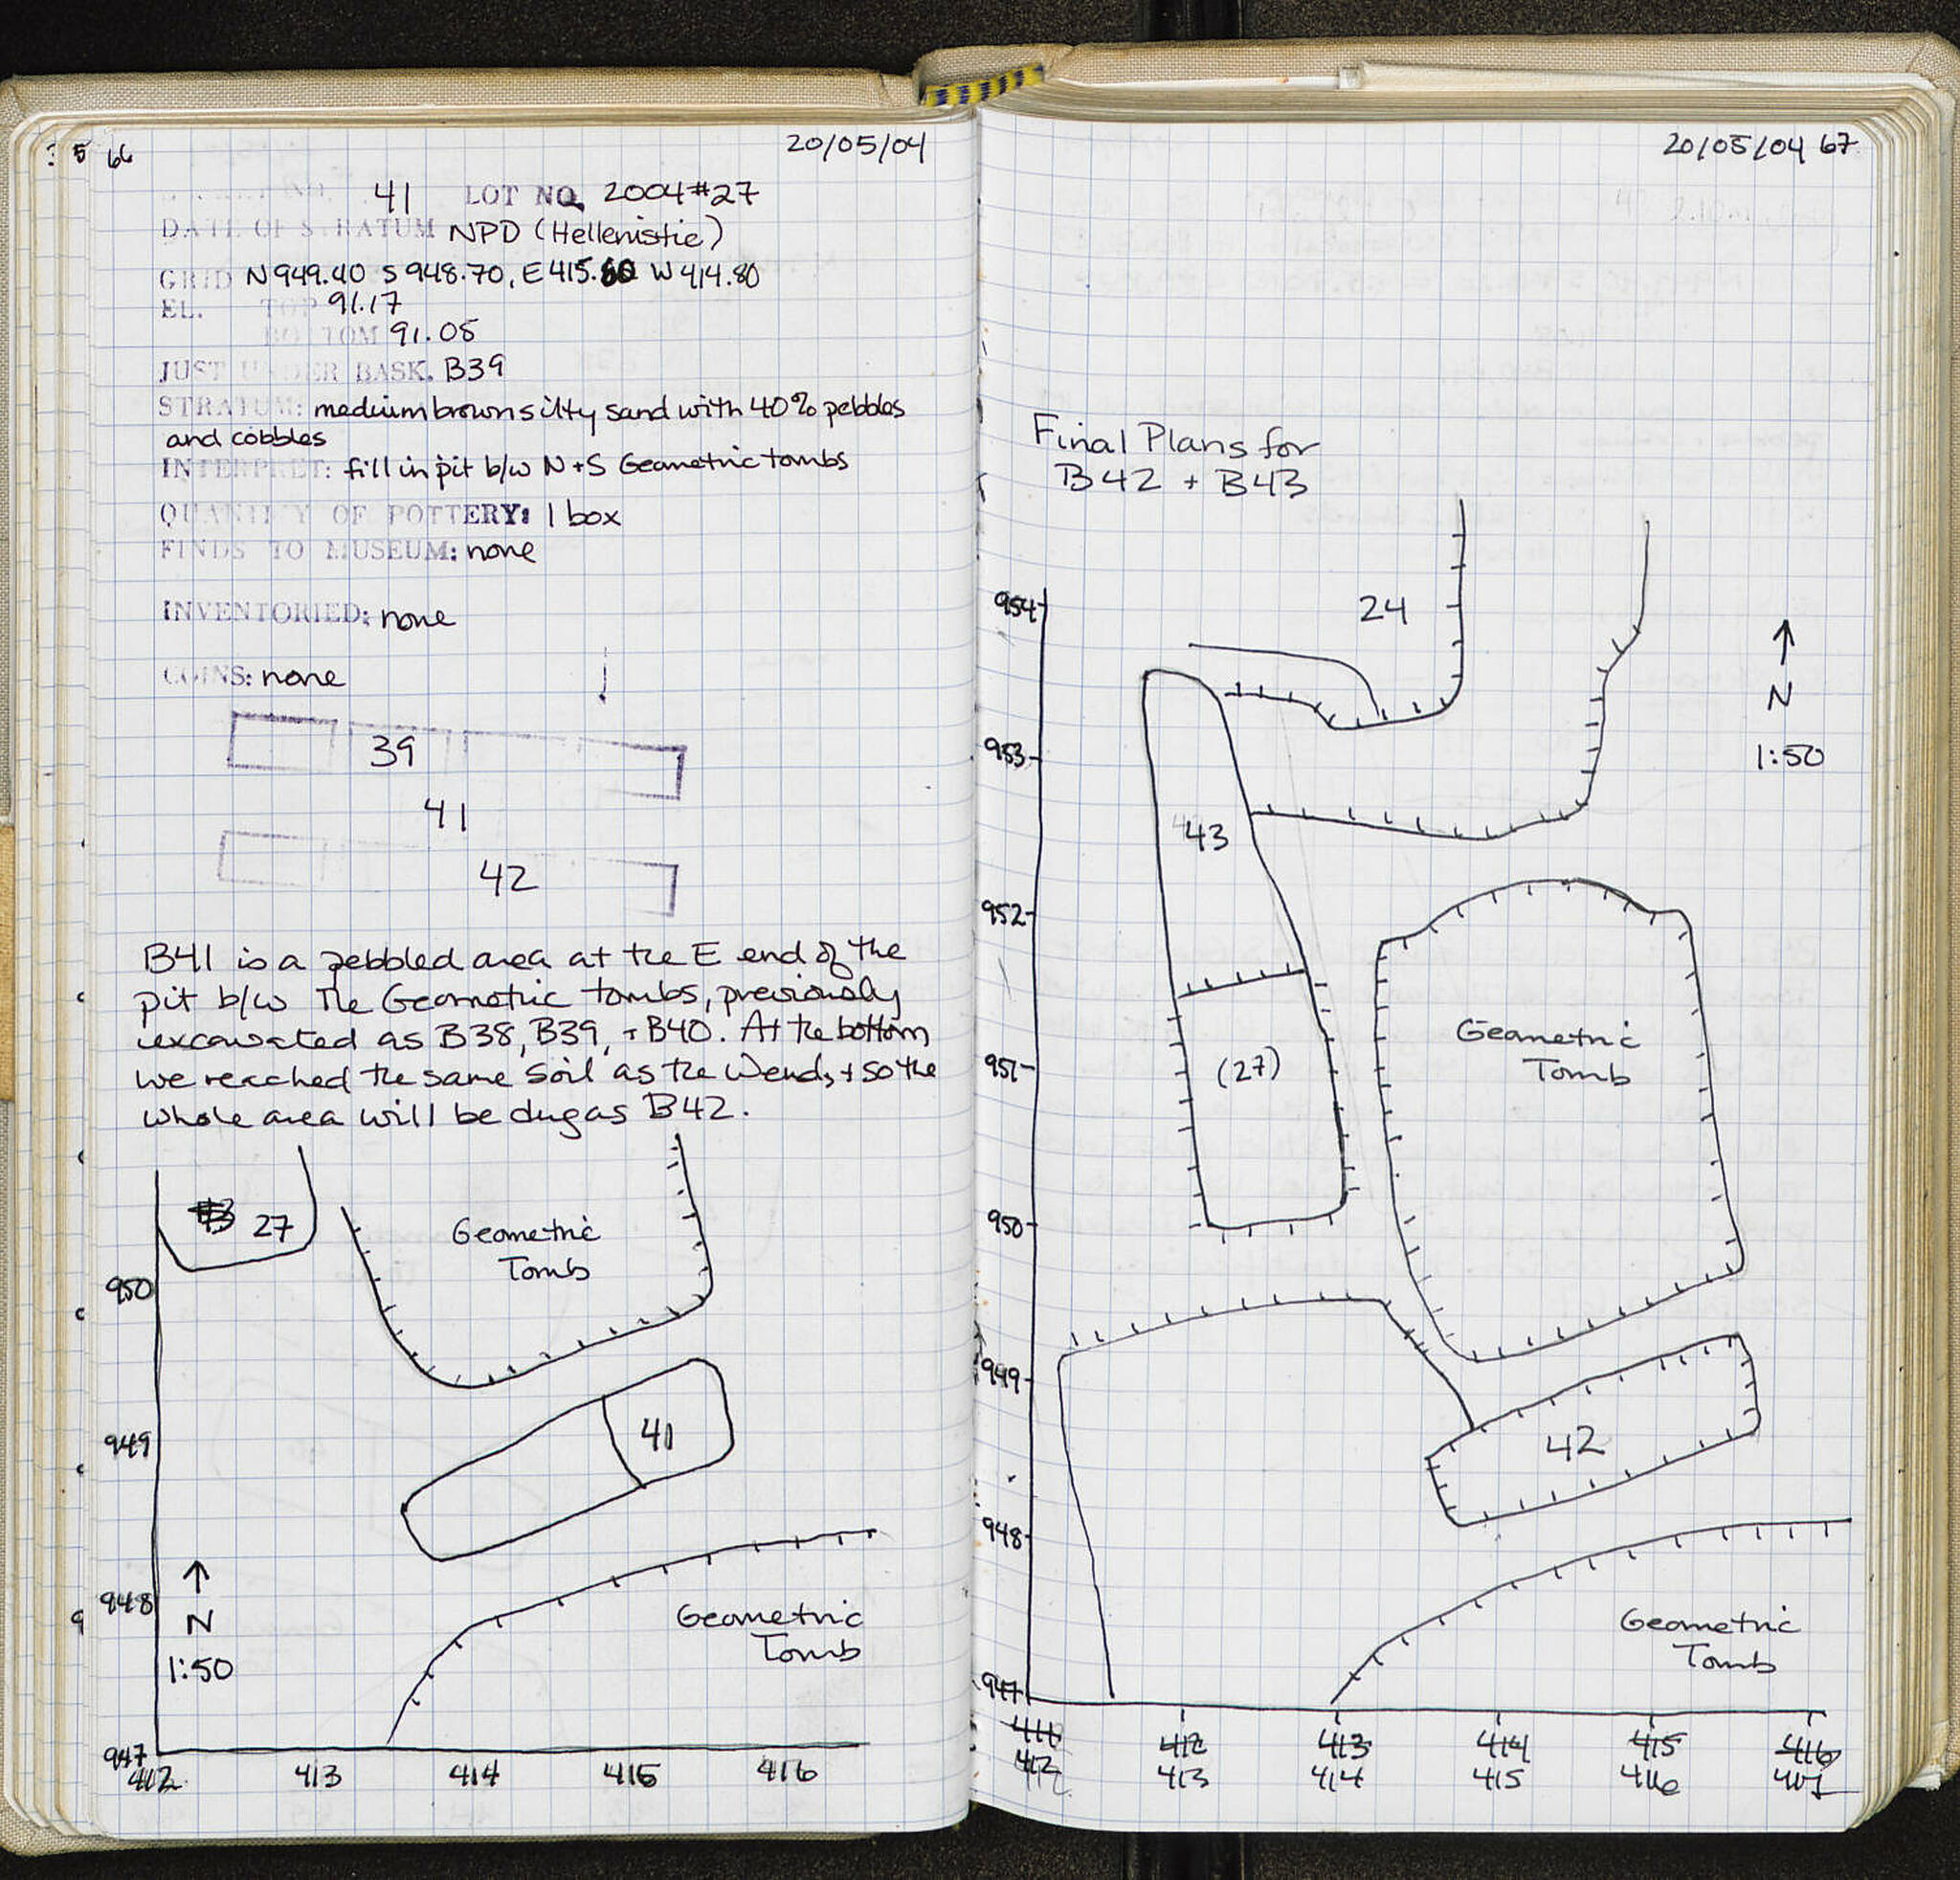 66 20/05/04
41 LOT NO. 2004#27
DATE OF STRATUM NPD (Hellenistic)
GRID N949.40 S948.70, E415.60 W414.80
EL. TOP 91.17
BOTTOM 91.05
JUST UNDER BASK. B39
STRATUM: medium brown silty sand with 40% pebbles
and cobbles
INTERPRET: fill in pit b/w N+S Geometric tombs
QUANTITY OF POTTERY: 1 box
FINDS TO MUSEUM: none
INVENTORIED: none
COINS: none
39
41
42
B41 is a pebbled area at the E end of the
pit b/w the Geometric tombs, previously
excavated as B38, B39, + B40. At the bottom
we reached the same soil as the W end, + so the
whole area will be dug as B42.
27
Geometric
Tomb
950
41
949
948
N
1:50
Geometric
Tomb
947
412 413 414 415 416
20/05/04 67
Final Plans for
B42 + B43
954
24
N
1:50
953
43
952
Geometric
Tomb
951
(27)
950
949
42
948
Geometric
Tomb
947
411 412 413 414 415 416
412 413 414 415 416 417